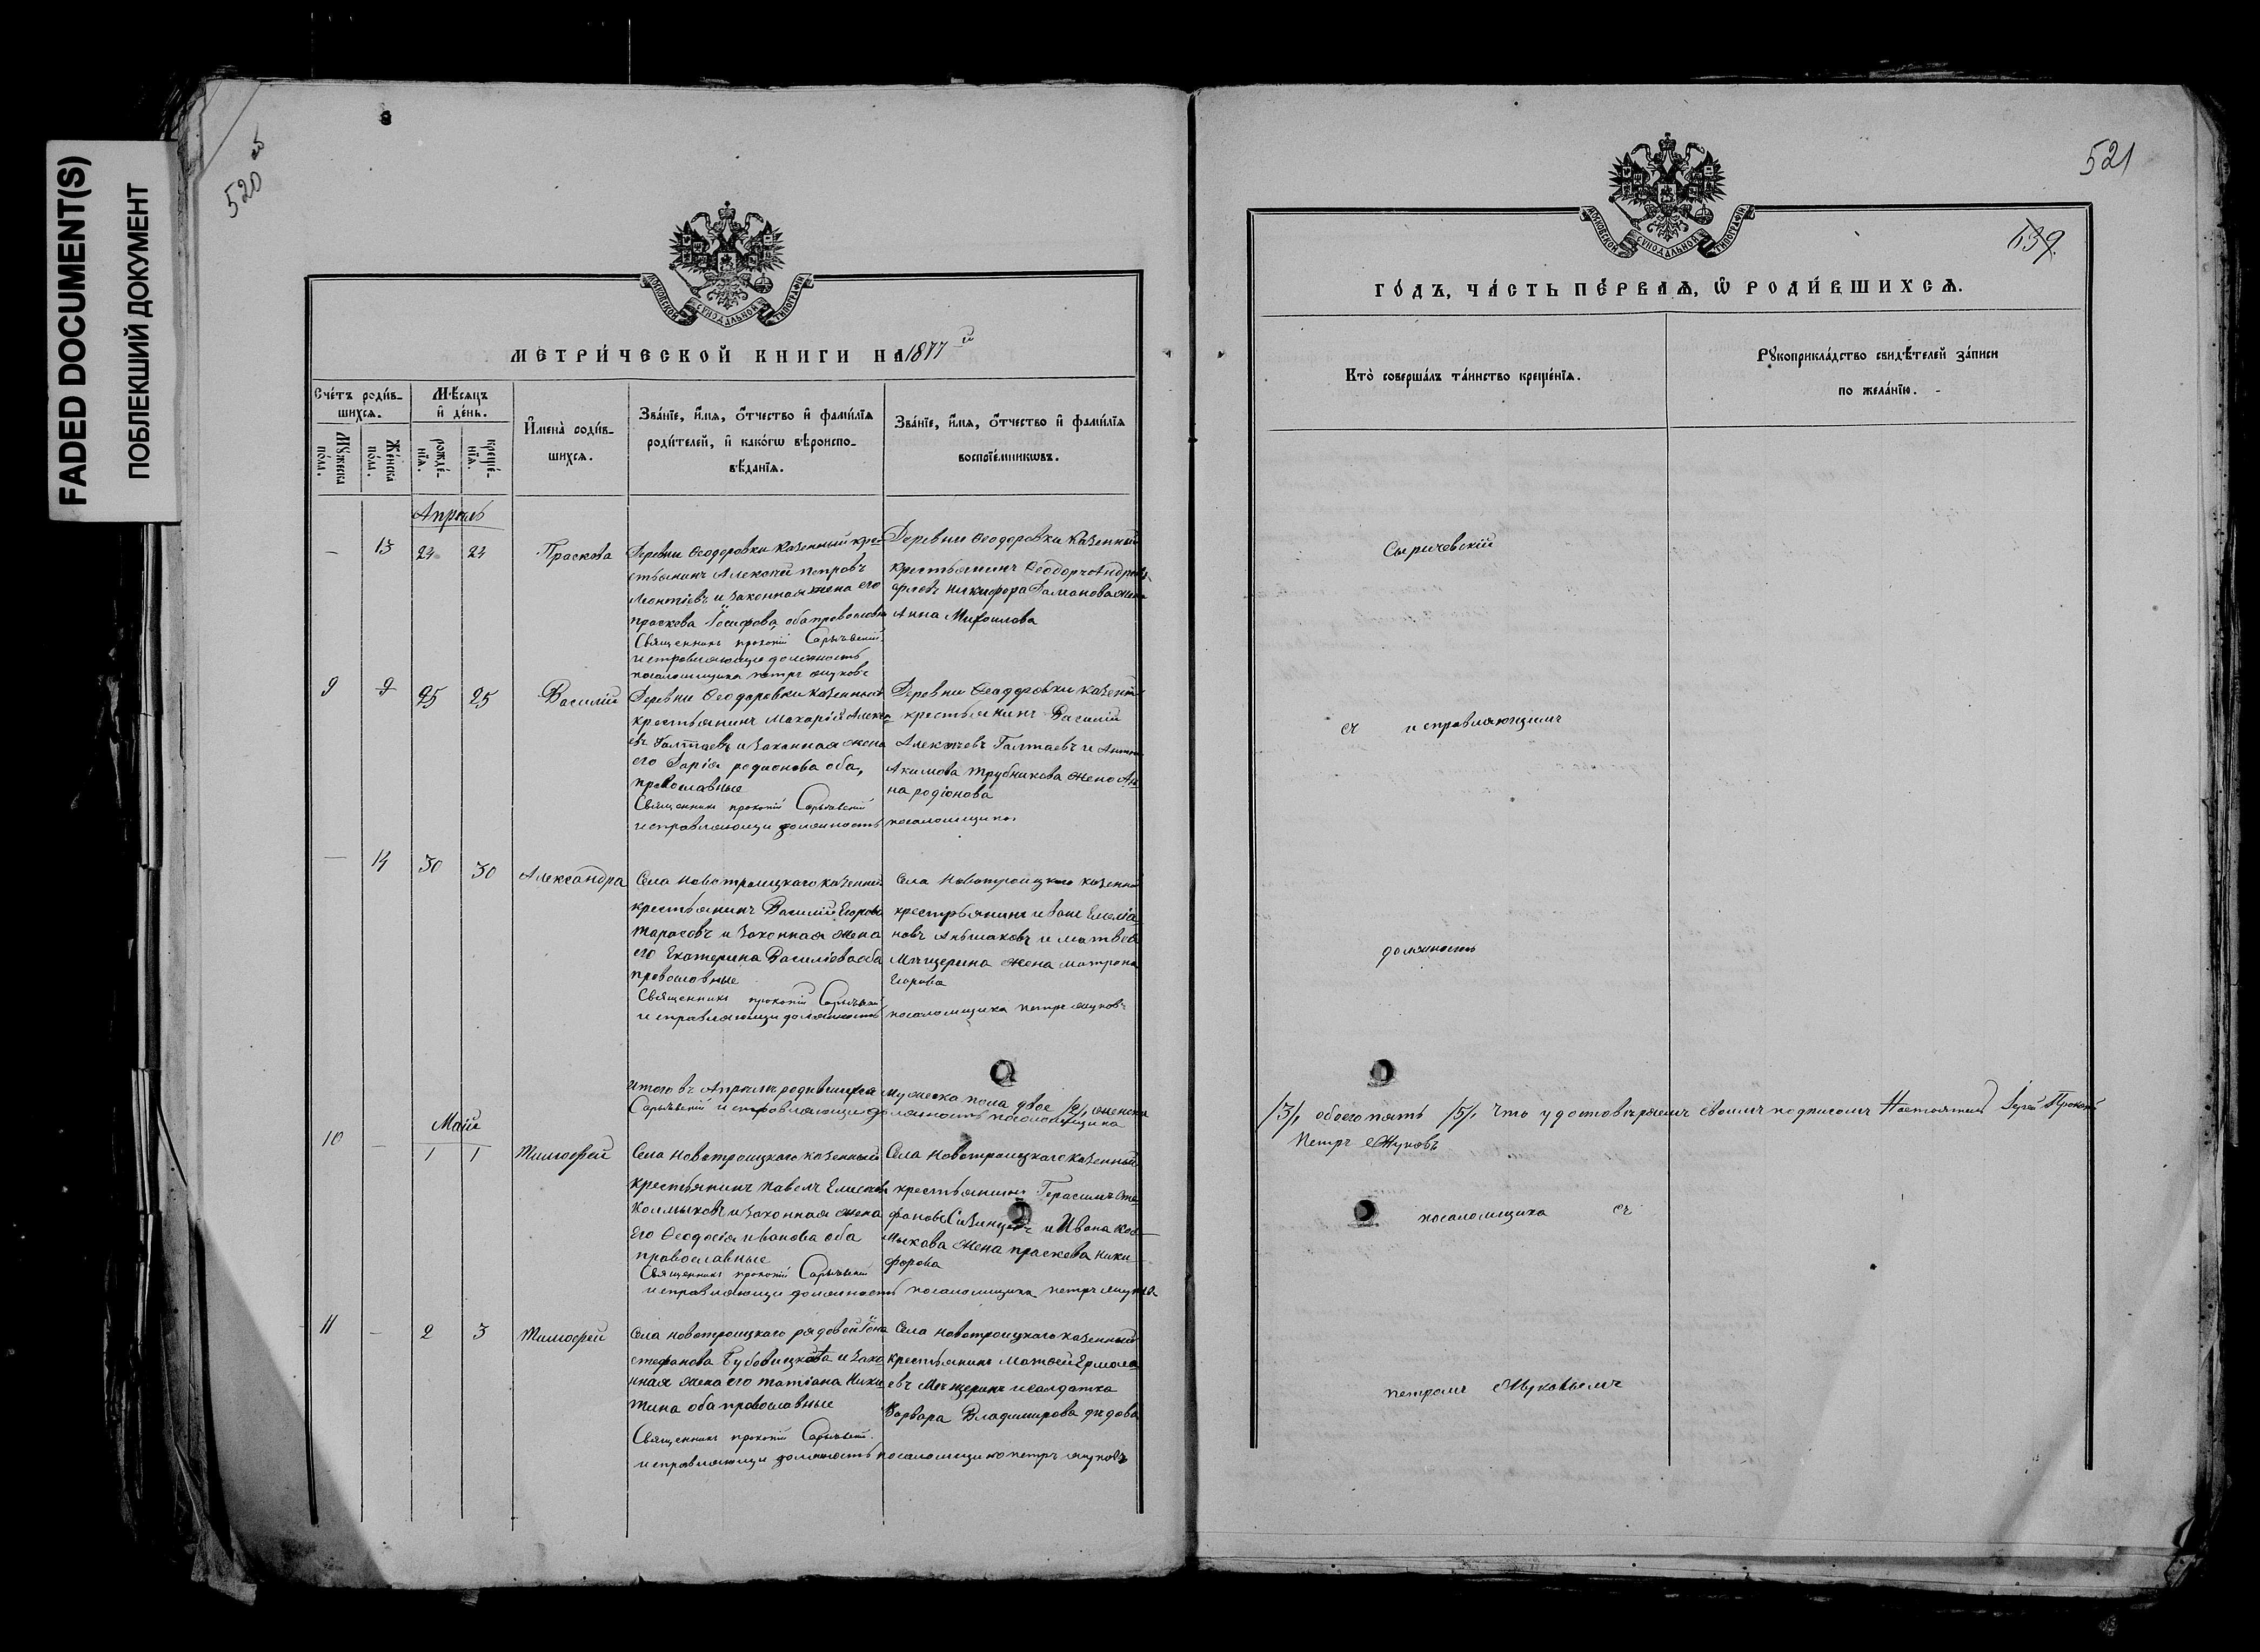 FADED DOCUMENT(S)
ПОБЛЕКШИЙ ДОКУМЕНТ
520 об
МОСКОВСКОЙ СѴНОДАЛЬНОЙ ТИПОГРАФІИ
МЕТРИ́ЧЕСКОЙ КНИГИ НА 1877 й
Сче́тъ роди́в-
шихсѧ.
Мꙋ́жеска по́ла.
Же́нска по́ла.
Мѣ́сѧцъ
и҆ де́нь.
рожде́-
нїѧ.
креще́-
нїѧ.
И҆мена̀ роди́в-
шихсѧ.
Зва́нїе, и҆́мѧ, ѻ҆́тчество и҆ фами́лїѧ
роди́телей, и҆ како́гѡ вѣроиспо-
вѣ́данїѧ.
Зва́нїе, и҆́мѧ, ѻ҆́тчество и҆ фами́лїѧ
воспрїе́мникѡвъ.
Апрель
— 13 24 24 Праскова
Деревни Феодоровки Казенный кре-
стьянинъ Алексѣй петровъ
Леонтіевъ и законная жена его
праскева Іосифова, оба православн
Священникъ прокопій Сарычевскій
исправляющи должность
псаломщика петръ жуковъ
Деревни Феодоровки Казенный
крестьянинъ Феодоръ Андрее
Никифора жена
Анна Михоилова
9 25 25 Василій
Деревни Феодоровки казенный
крестьянинъ Макарій Алексѣ
евъ Галтаевъ и законная жена
его Дарія родионова оба,
православные
Священникъ прокопій Сарычевскій
исправляющи должность псаломщика
Деревни Феодоровки казенн
крестьянинъ Василій
Алексѣевъ Галтаевъ и
Акимова Трубникова жена Ан
на родіонова
— 14 30 30 Александра
Села Новотроицкаго казенный
крестьянинъ Василій Егоровъ
Тарасовъ и законная жена
его Екатерина Василіева оба
православные
Священникъ прокопій Сарычевскій
исправляющи должность псаломщика петръ жуковъ
Села Новотроицкаго казенный
крестьянинъ Иванъ Емелія
новъ и матвея
Мещерина жена матрона
Егорова
итого въ Апрѣлѣ родившихся мужеска пола двое /2/, женска
Сарычевскій исправляющи должность псаломщика
Май
10 — 1 1 Тимофей
Села Новотроицкаго казенный
крестьянинъ павелъ
Колмыковъ и законная жена
Его Феодосія иванова оба
православные
Священникъ прокопій Сарычевскій
исправляющи должность псаломщика петръ жуковъ
Села Новотроицкаго казенный
крестьянинъ Герасимъ Сте
фановъ и Ивана Кол
мыкова жена праскева Ники
форова
11 — 2 3 Тимофей
Села новотроицкаго рядовой Іона
стефанова и зако
нная жена его татіана Ники
тина оба православные
Священникъ прокопій Сарычевскій
исправляющи должность псаломщика петръ жуковъ
Села новотроицкаго казенный
крестьянинъ матвей Ермола
евъ Мещеринъ и солдатка
Варвара Владимирова дѣдова
521
МОСКОВСКОЙ СѴНОДАЛЬНОЙ ТИПОГРАФІИ
ГО́ДЪ, ЧА́СТЬ ПЕ́РВАѦ, Ѽ РОДИ́ВШИХСѦ.
Кто̀ соверша́лъ та́инство креще́нїѧ.
Рꙋкоприкла́дство свидѣ́телей за́писи
по жела́нїю.
Сырычевскій
съ исправляющимъ
должность
/3/, обоего пять /5/, что удостовѣряемъ своимъ подписомъ Настоятель Іерей Прокоп
Петръ Жуковъ
псаломщика съ
петромъ Жуковымъ